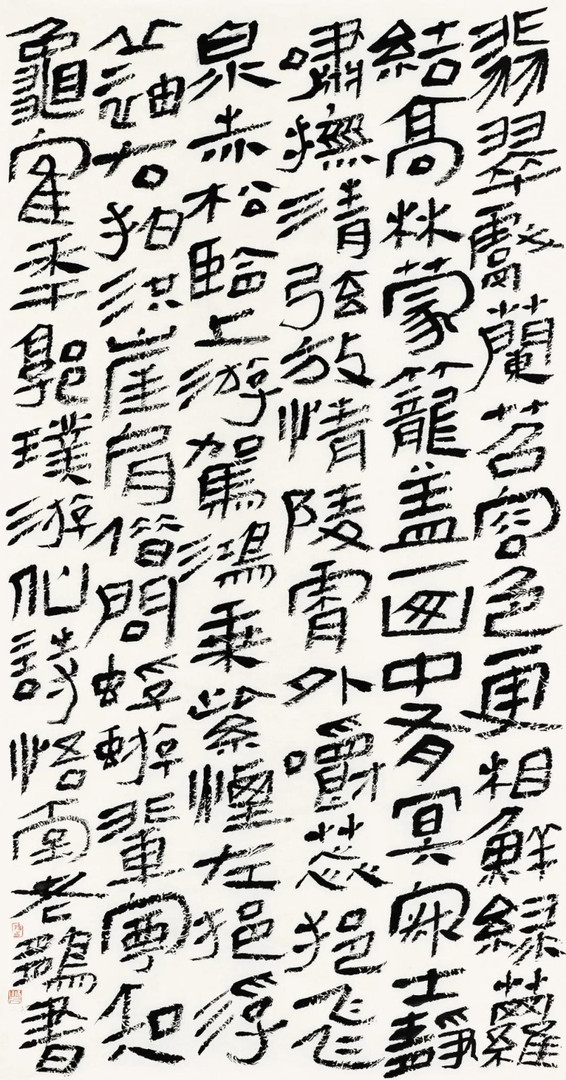 翡翠戲蘭苕容色更相鮮綠蘿
結高林蒙籠蓋一山中有冥寂士靜
嘯撫清弦放情陵霄外嚼蕊挹飛
泉赤松臨上游駕鴻乘紫煙左挹浮
丘袖右拍洪崖肩借問蜉蝣輩寧知
龜寉年郭璞游仙詩悟堂老書